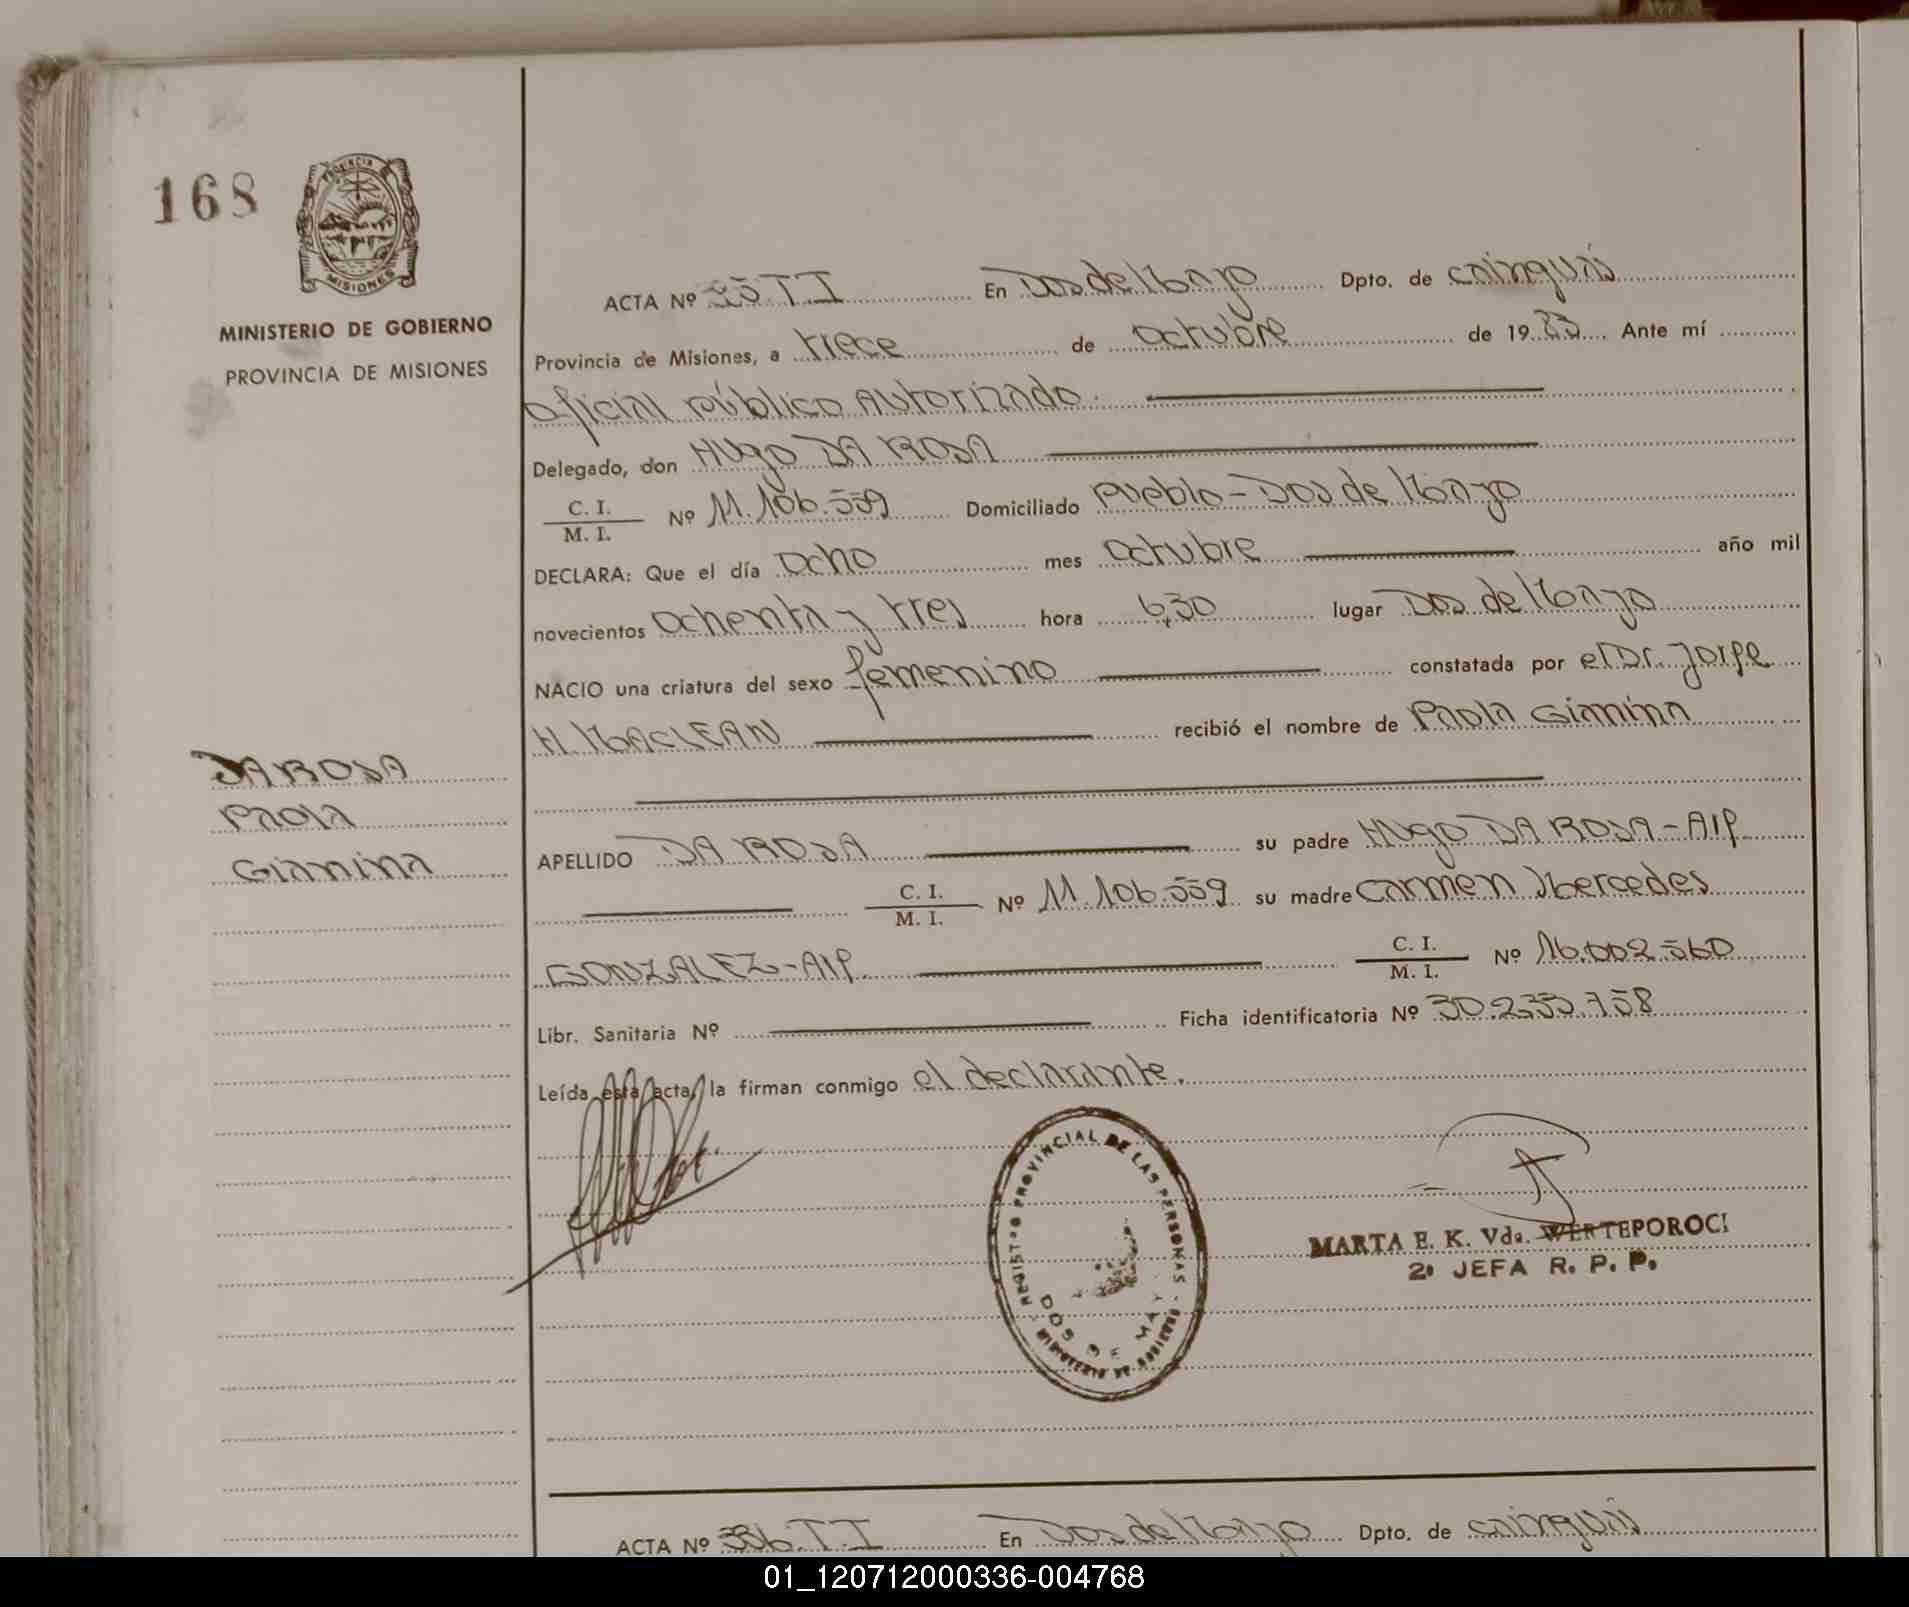 168
PROVINCIA
MISIONES
MINISTERIO DE GOBIERNO
PROVINCIA DE MISIONES
ACTA Nº T I En Dos de Mayo Dpto. de Cainguás
Provincia de Misiones, a trece de octubre de 1983 Ante mí
oficial público autorizado.
Delegado, don Hugo DA ROSA
C. I. / M. I. Nº 11.106.559 Domiciliado pueblo - Dos de Mayo
DECLARA: Que el día ocho mes octubre año mil
novecientos ochenta y tres hora 6,30 lugar Dos de Mayo
NACIO una criatura del sexo femenino constatada por el Dr. Jorge
H. MACLEAN recibió el nombre de Paola Gianina
DA ROSA
Paola
Gianina
APELLIDO DA ROSA su padre Hugo DA ROSA - Arg.
C. I. / M. I. Nº 11.106.559 su madre Carmen Mercedes
GONZALEZ - Arg. C. I. / M. I. Nº 16.002.560
Libr. Sanitaria Nº Ficha identificatoria Nº 30.235.758
Leída esta acta, la firman conmigo el declarante.
REGISTRO PROVINCIAL DE LAS PERSONAS - MINISTERIO DE GOBIERNO
DOS DE MAY
MARTA E. K. Vda. WERTEPOROCI
2ª JEFA R. P. P.
ACTA Nº 336. T I En Dos de Mayo Dpto. de Cainguás
01_120712000336-004768